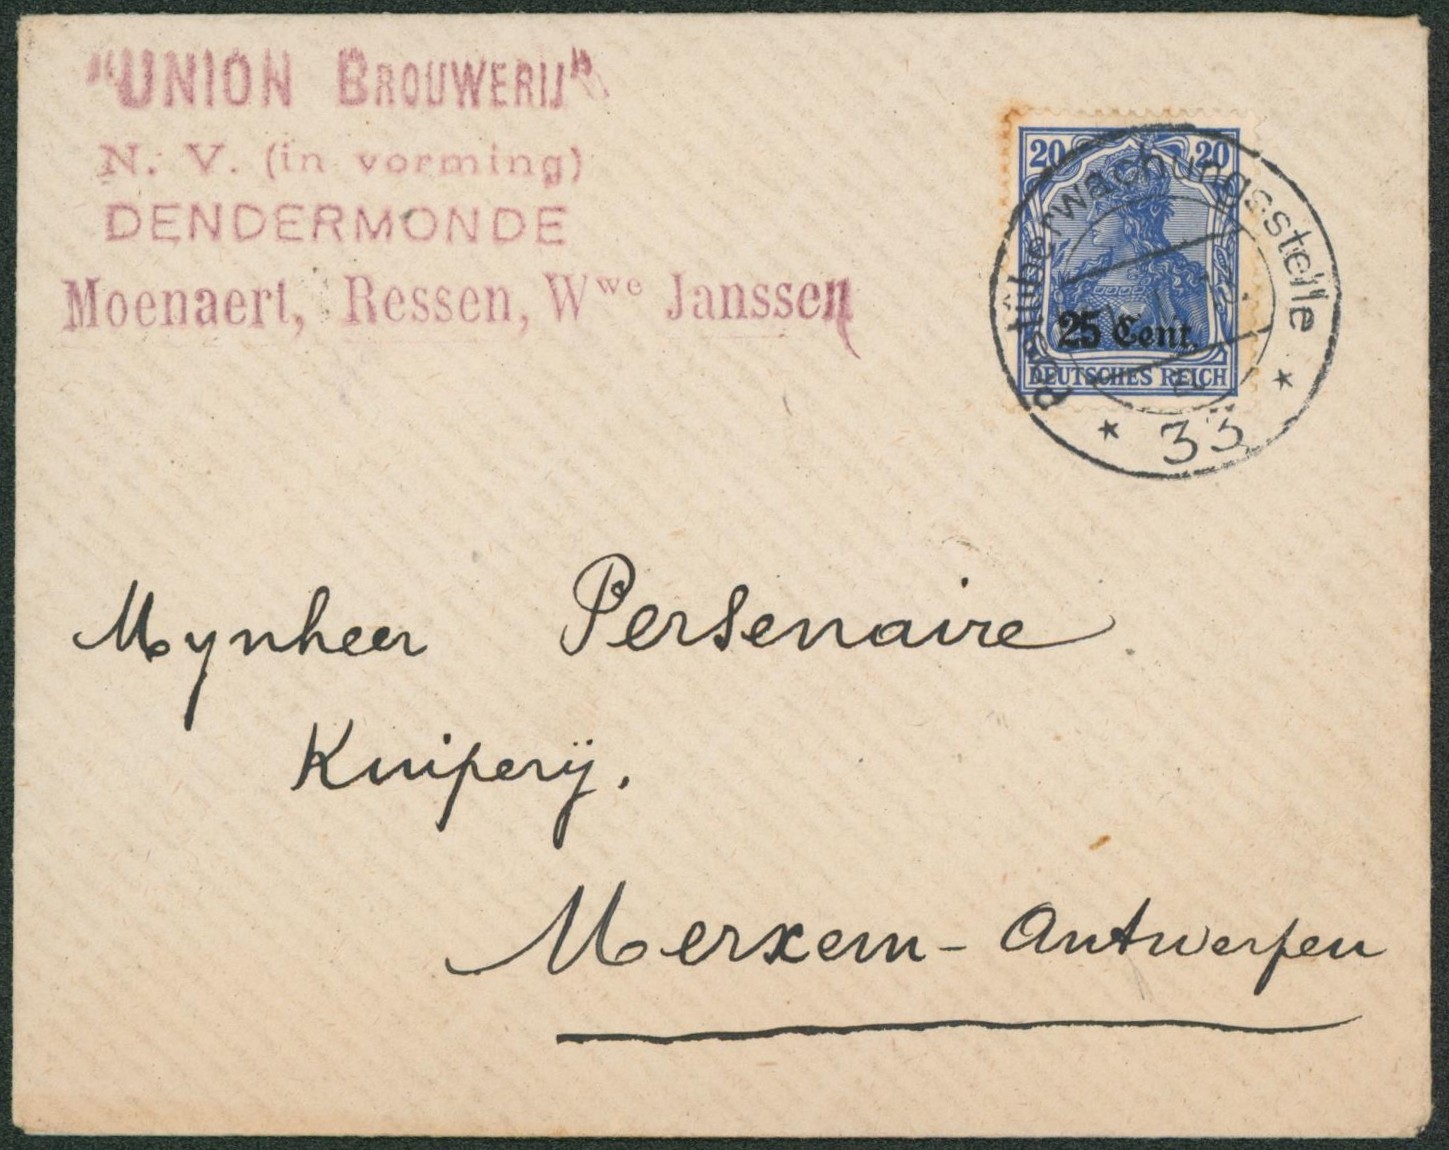 "UNION BROUWERIJ"
N. V. (in vorming)
DENDERMONDE
Moenaert, Ressen, Wwe Janssen
20 20
25 Cent.
DEUTSCHES REICH
Postüberwachungsstelle
* 33 *
Mynheer Persenaire
Kuiperij.
Merxem - Antwerpen